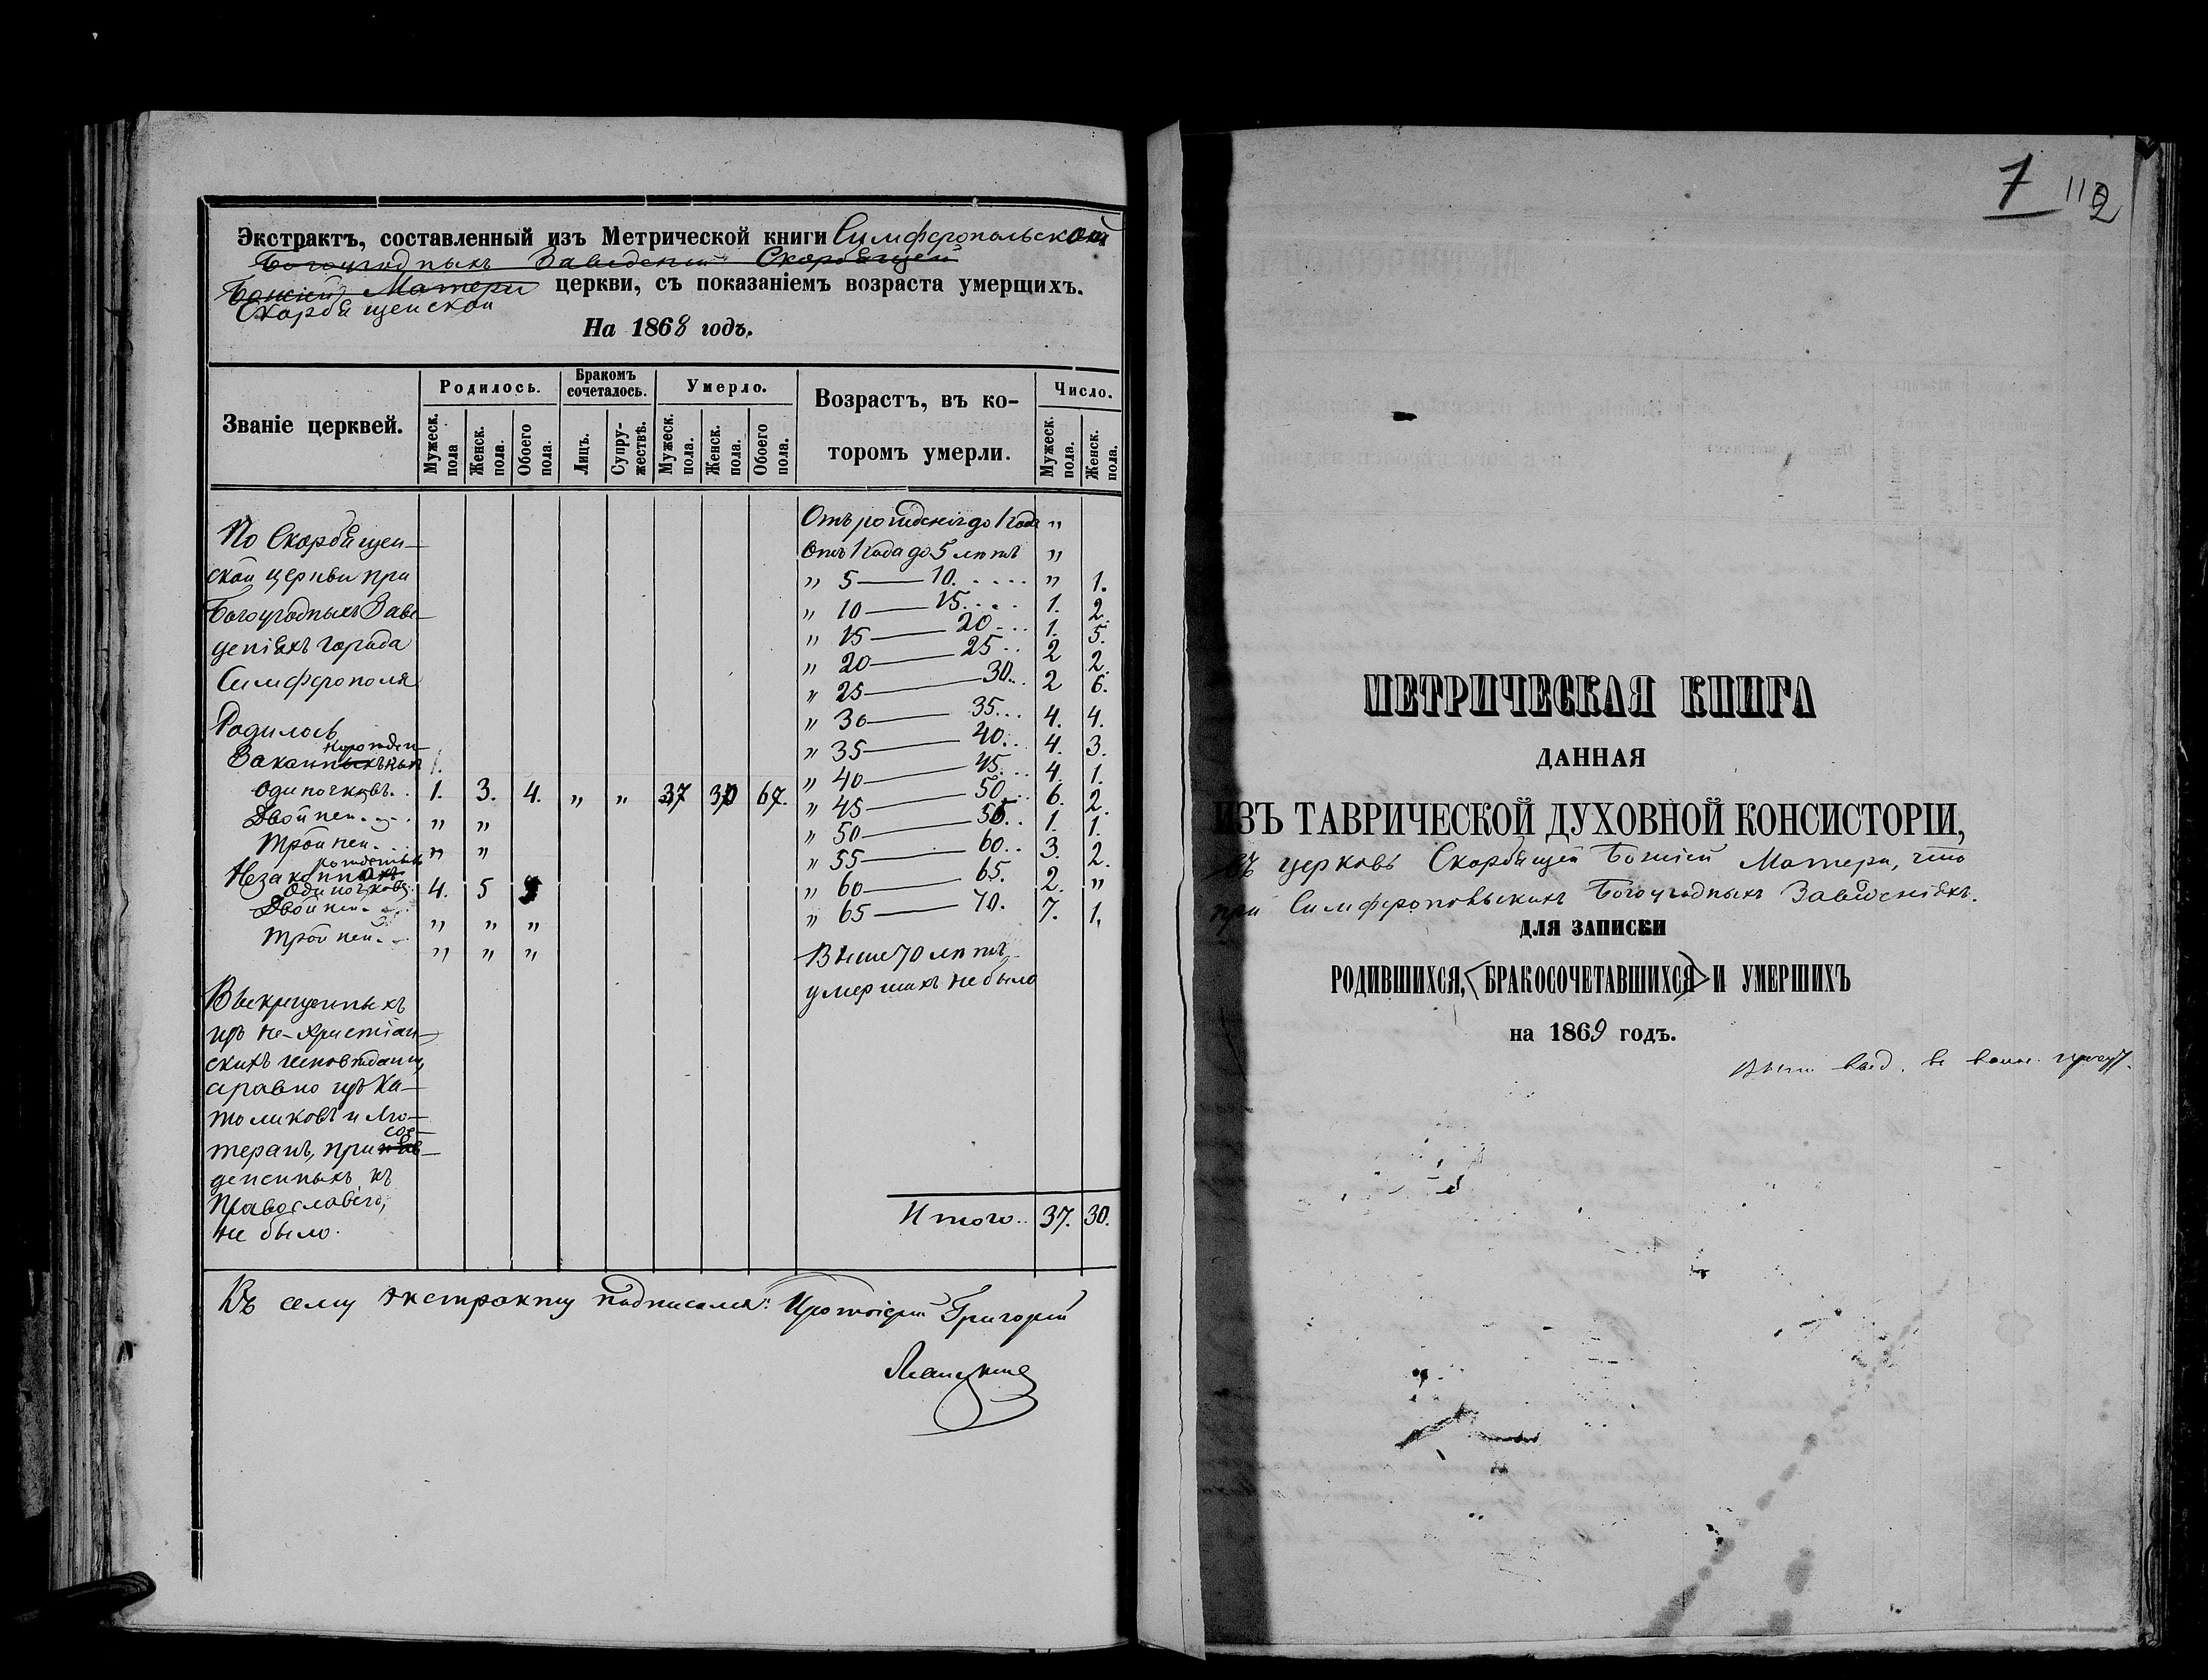 Экстрактъ, составленный изъ Метрической книги Симферопольской
Богоугодныхъ Заведеній Скорбящей
Божіей Матери церкви, съ показаніемъ возраста умерщихъ.
Скорбященской
На 1868 годъ.
Званіе церквей.
Родилось.
Бракомъ сочеталось.
Умерло.
Возрастъ, въ ко-
торомъ умерли.
Число.
Мужеск. пола
Женск. пола.
Обоего пола.
Лицъ.
Супру-
жествъ.
Мужеск. пола.
Женск. пола.
Обоего пола.
Мужеск. пола.
Женск. пола.
По Скорбящен-
ской церкви при
Богоугодныхъ Заве-
деніяхъ города
Симферополя
Родилось
Законно
одиночковъ. . 1. 3. 4. „ „ 37 30 67.
Двойней. . . „ „
Тройней. . . „ „
Незаконно
Одиночковъ. 4. 5 9
Двойней. . . „ „ „
Тройней. . . „ „ „
Выкрещенныхъ
изъ не-христіан-
скихъ исповѣданій,
а равно изъ Ка-
толиковъ и Лю-
теранъ, присое-
диненныхъ къ
Православію,
не было.
Отъ рожденія до 1 года „
Отъ 1 года до 5 лѣтъ „
„ 5 — 10. . . . . „ 1.
„ 10 — 15. . . . 1. 2.
„ 15 — 20. . . 1. 5.
„ 20 — 25. . 2 2.
„ 25 — 30. . 2 6.
„ 30 — 35. . . 4. 4.
„ 35 — 40. . 4. 3.
„ 40 — 45. . . 4. 1.
„ 45 — 50. . . 6. 2.
„ 50 — 55. . 1. 1.
„ 55 — 60. . 3. 2.
„ 60 — 65. 2. „
„ 65 — 70. 7. 1.
Выше 70 лѣтъ
умершихъ не было
Итого. . 37. 30.
Къ сему экстракту подписался: Протоіерей Григорій
7 112
МЕТРИЧЕСКАЯ КНИГА
ДАННАЯ
ИЗЪ ТАВРИЧЕСКОЙ ДУХОВНОЙ КОНСИСТОРІИ,
въ церковь Скорбящей Божіей Матери, что
при Симферопольскихъ Богоугодныхъ Заведеніяхъ.
ДЛЯ ЗАПИСКИ
РОДИВШИХСЯ, БРАКОСОЧЕТАВШИХСЯ И УМЕРШИХЪ
на 1869 годъ.